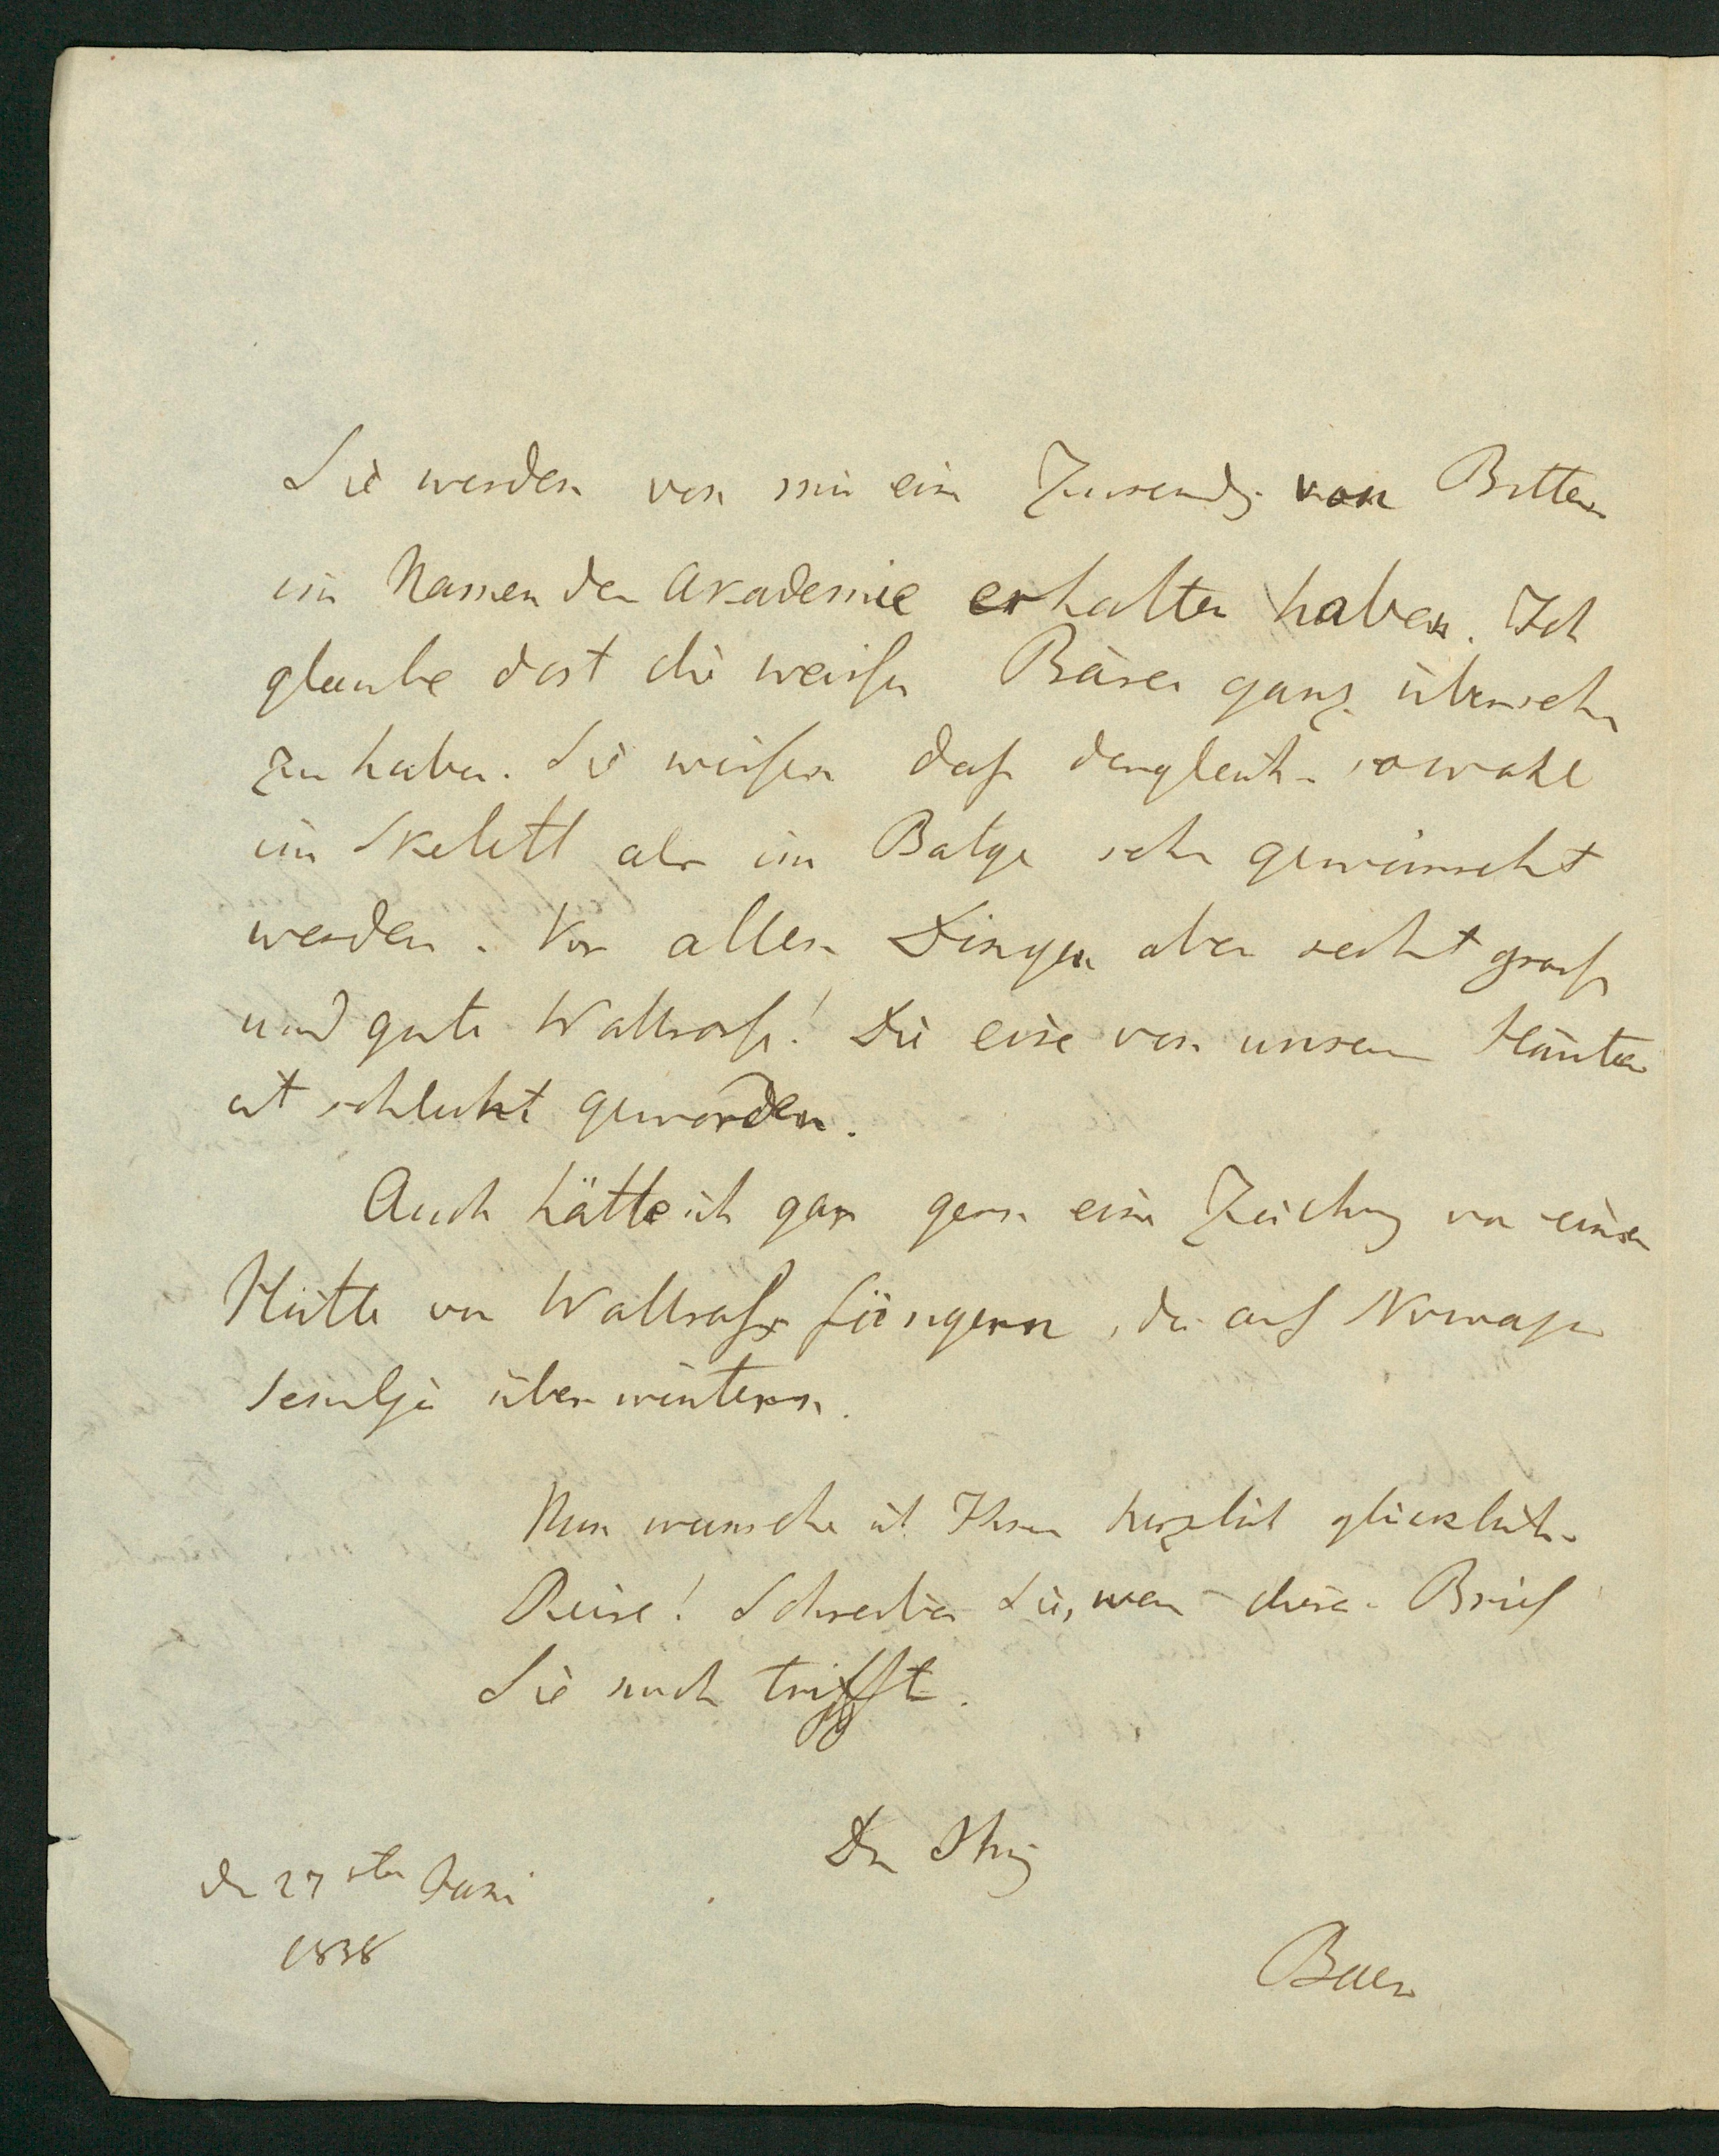 Sie werden von mir eine Zusendg. von Bitten
im Namen der Akademie erhalten haben. Ich
glaube dort die weißen Bären ganz übersehn
zu haben. Sie wissen daß dergleich. sowohl
im Skelett als im Balge sehr gewünscht
werden. Vor allen Dingen aber recht große
und gute Wallrosse! Die eine von unsern Häuten
ist schlecht geworden.
Auch hätte ich gar gern eine Zeichng von einer
Hütte von Wallroßfängern, die auf Nowaja
Semlja überwintern.
Nun wünsche ich Ihnen herzlich glücklich.
Reise! Schreiben Sie, wenn dieser Brief
Sie noch trifft.
Der Ihrig
Baer
den 27sten Juni
1838